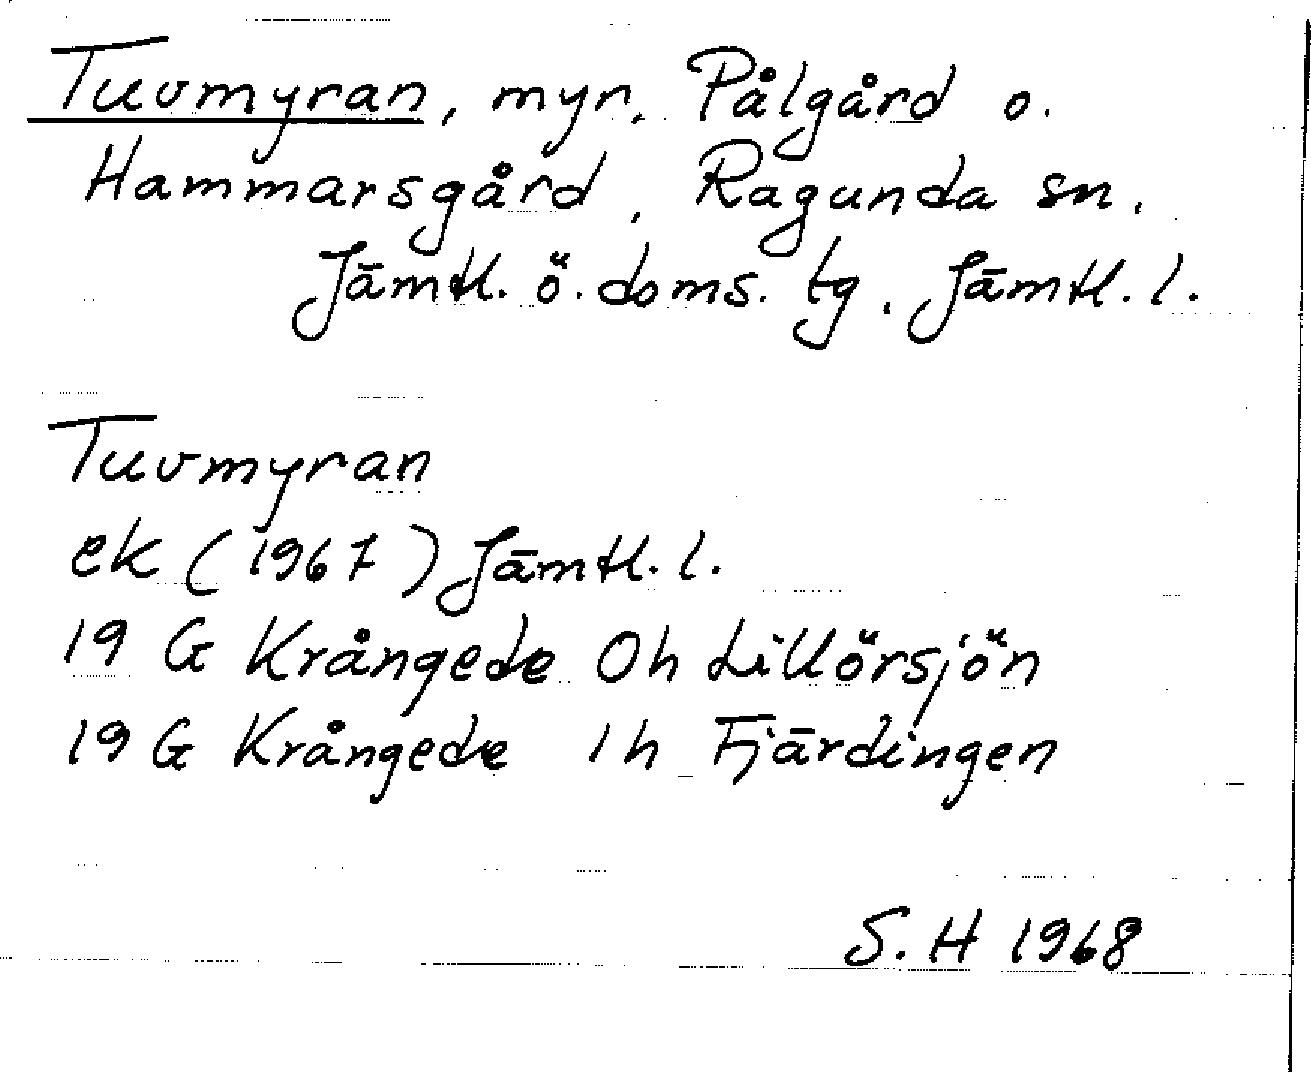 Tuvmyran, myr, Pålgård o.
Hammarsgård, Ragunda sn,
Jämtl. ö. doms. tg, Jämtl. l.
Tuvmyran
ek (1967) Jämtl. l.
19 G Krångede 0h Lillörsjön
19 G Krångede 1h Fjärdingen
S. H 1968